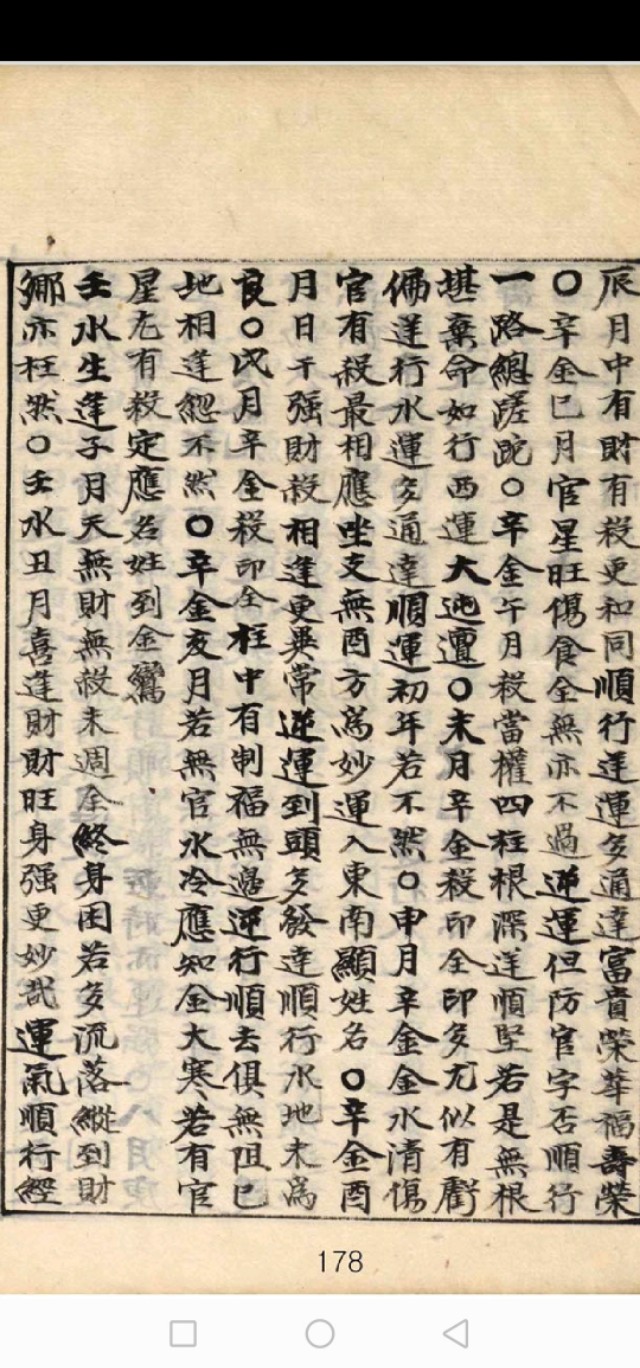 辰月中有財有殺更和同順行逆運多通達富貴榮華福壽榮
○辛金巳月官星旺傷食全無亦不過逆運但防官字否順行
一路總蹉跎○辛金午月殺當權四柱根深逆順堅若是無根
堪棄命如行西運大迍邅○未月辛金殺印全印多尤似有虧
偏逆行水運多通達順運初年若不然○申月辛金金水清傷
官有殺最相應坐支無酉方為妙運入東南顯姓名○辛金酉
月日干強財殺相逢更異常逆運到頭多發達順行水地未為
良○戌月辛金殺印全柱中有制福無邊逆行順去俱無阻巳
地相逢總不然○辛金亥月若無官水冷應知金大寒若有官
星尤有殺定應名姓到金鸞
壬水生逢子月天無財無殺未週全終身困若多流落縱到財
鄉亦枉然○壬水丑月喜逢財財旺身強更妙哉運氣順行經
178